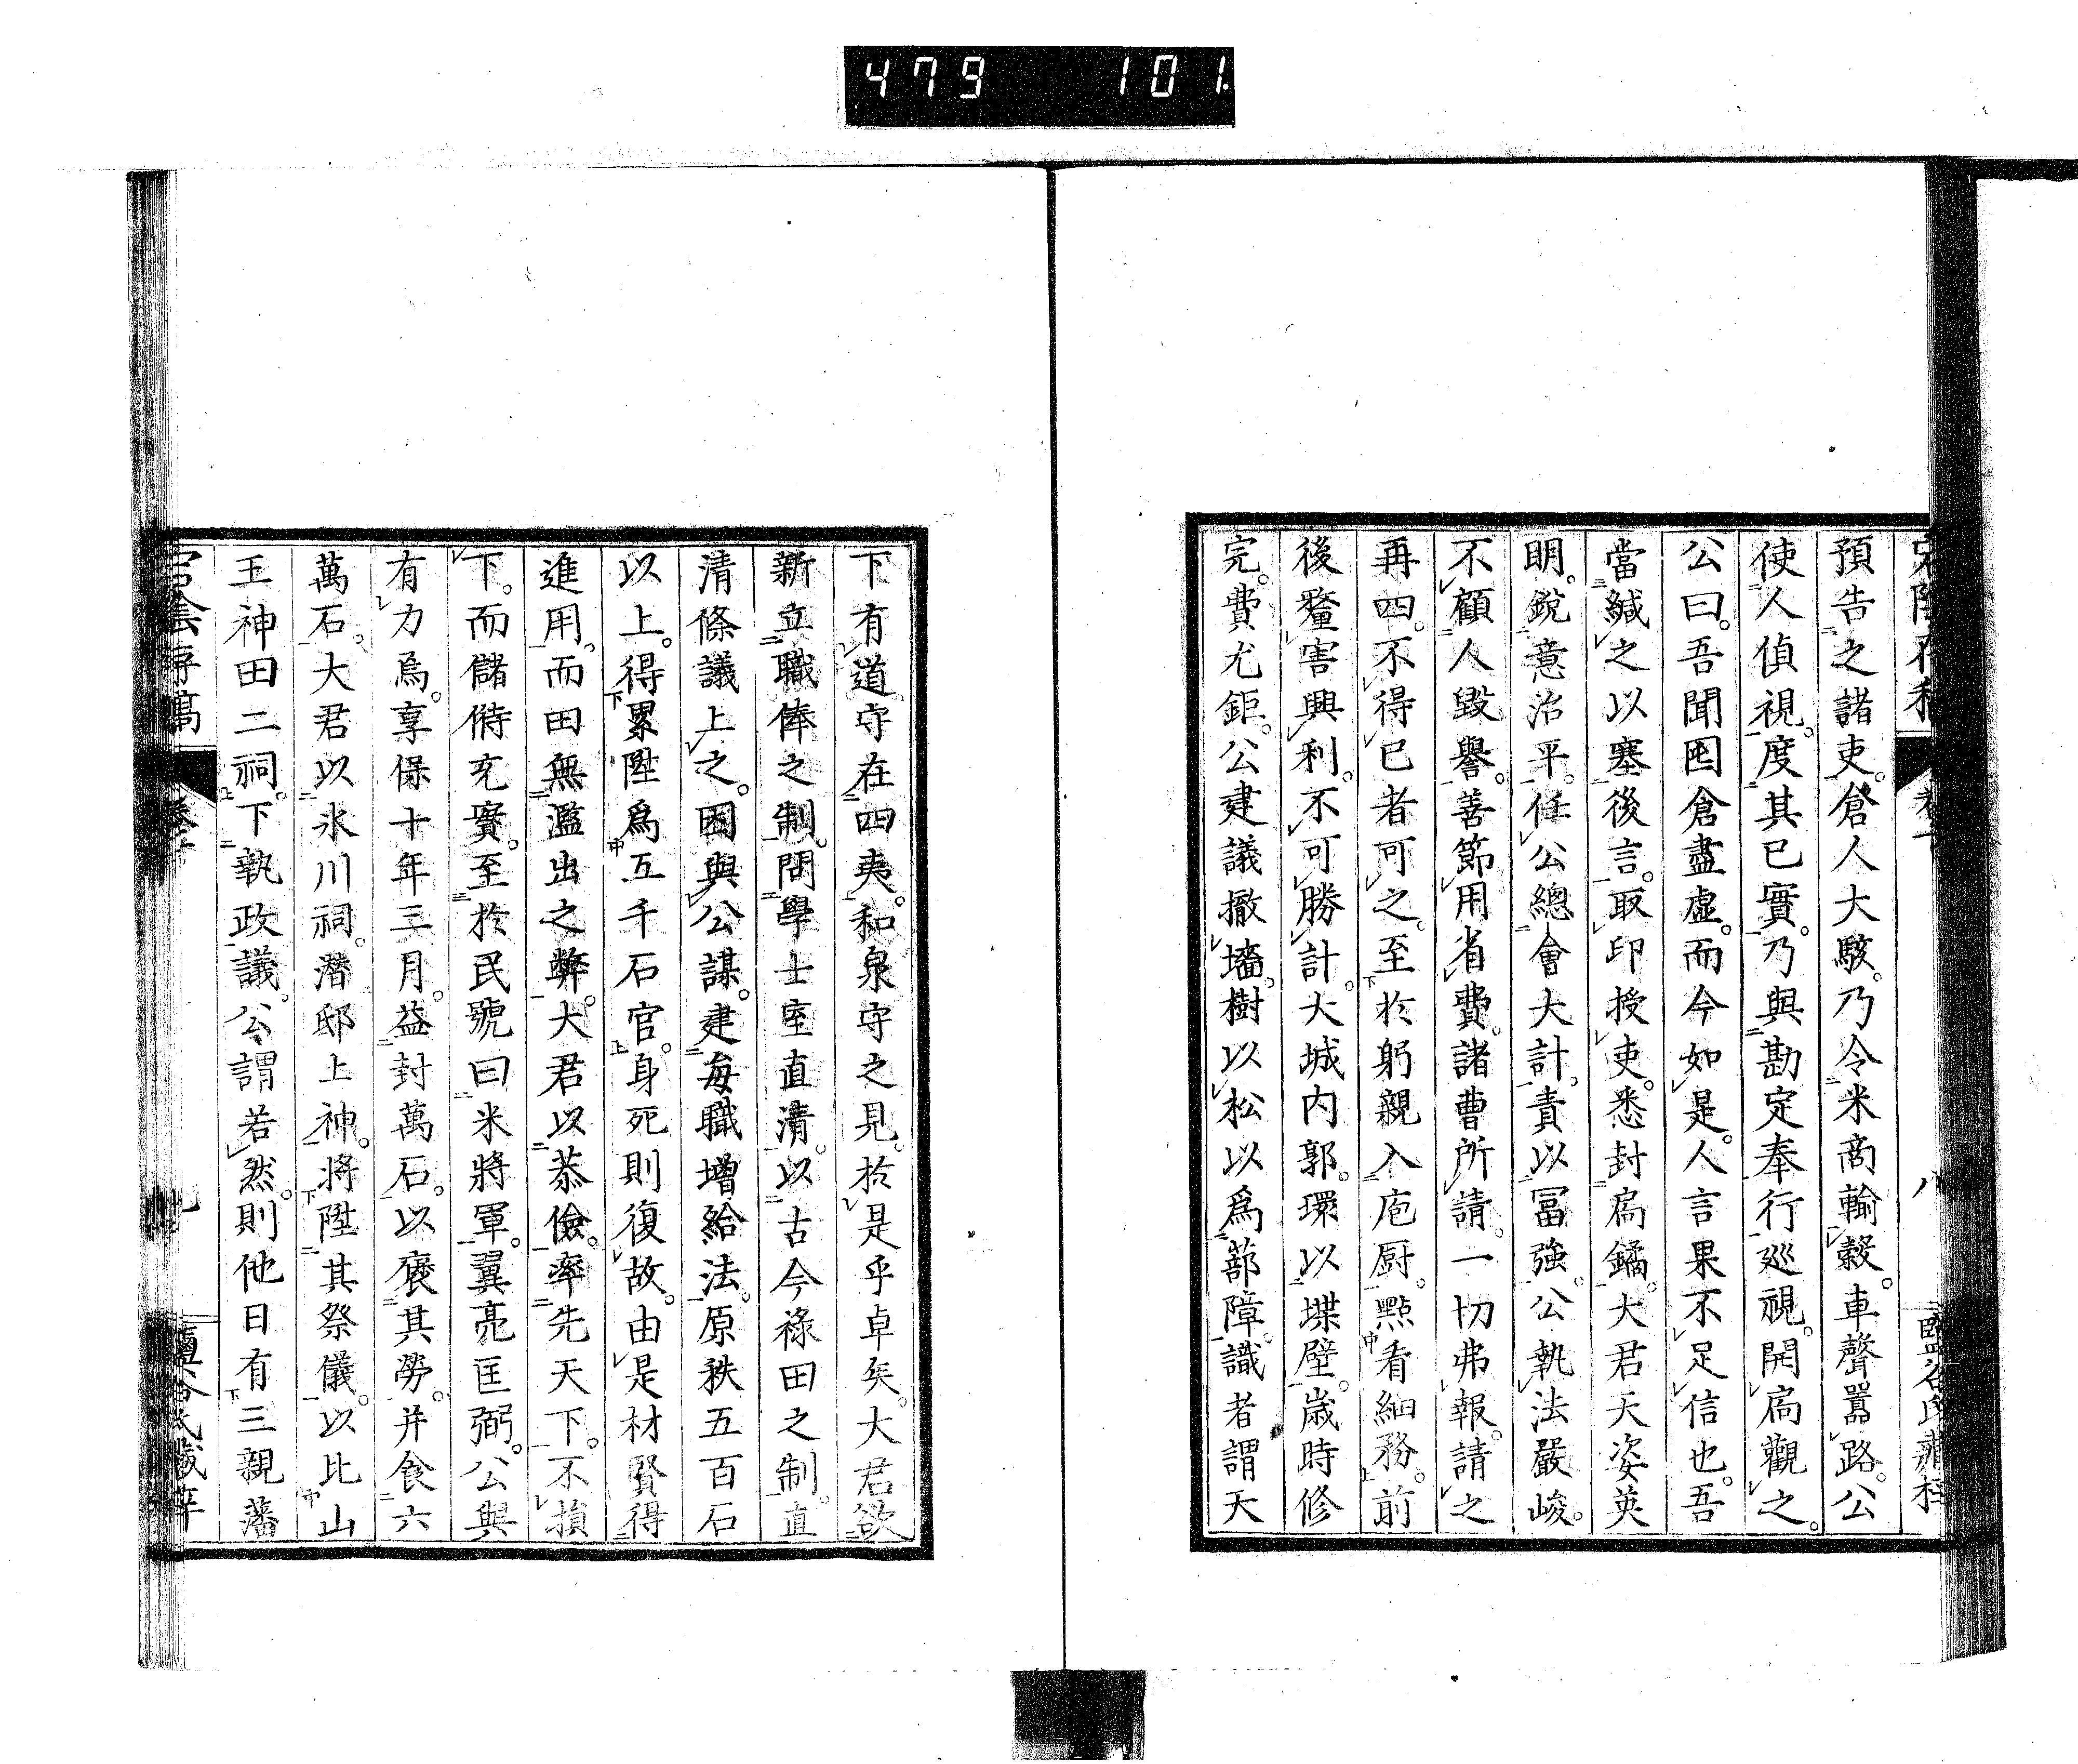 479 101
預告之諸吏。倉人大駭。乃令米商輸糓。車聲囂路。公
使人偵視。度其已實。乃與勘定奉行巡視。開扃觀之。
公曰。吾聞囷倉盡虛。而今如是。人言果不足信也。吾
當緘之以塞後言。取印授吏。悉封扃鐍。大君天姿英
明。銳意治平。任公總會大計。責以冨強。公執法嚴峻。
不顧人毀譽。善節用省費。諸曹所請。一切弗報。請之
再四。不得已者可之。至於躬親入庖厨。㸃看細務。前
後釐害興利。不可勝計。大城内郭。環以堞壁。歳時修
完。費尤鉅。公建議撤墻。樹以松以爲蔀障。識者謂天
下有道守在四夷。和泉守之見。於是乎卓矣。大君欲
新立職俸之制。問學士室直清。以古今祿田之制。直
清條議上之。因與公謀。建每職增給法。原秩五百石
以上。得累陞爲五千石官。身死則復故。由是材賢得
進用。而田無濫出之弊。大君以恭儉。率先天下。不損
下。而儲偫充實。至於民號曰米將軍。翼亮匡弼。公與
有力焉。享保十年三月。益封萬石。以褒其勞。并食六
萬石。大君以氷川祠。潛邸上神。將陞其祭儀。以比山
王神田二祠。下執政議。公謂若然。則他日有三親藩